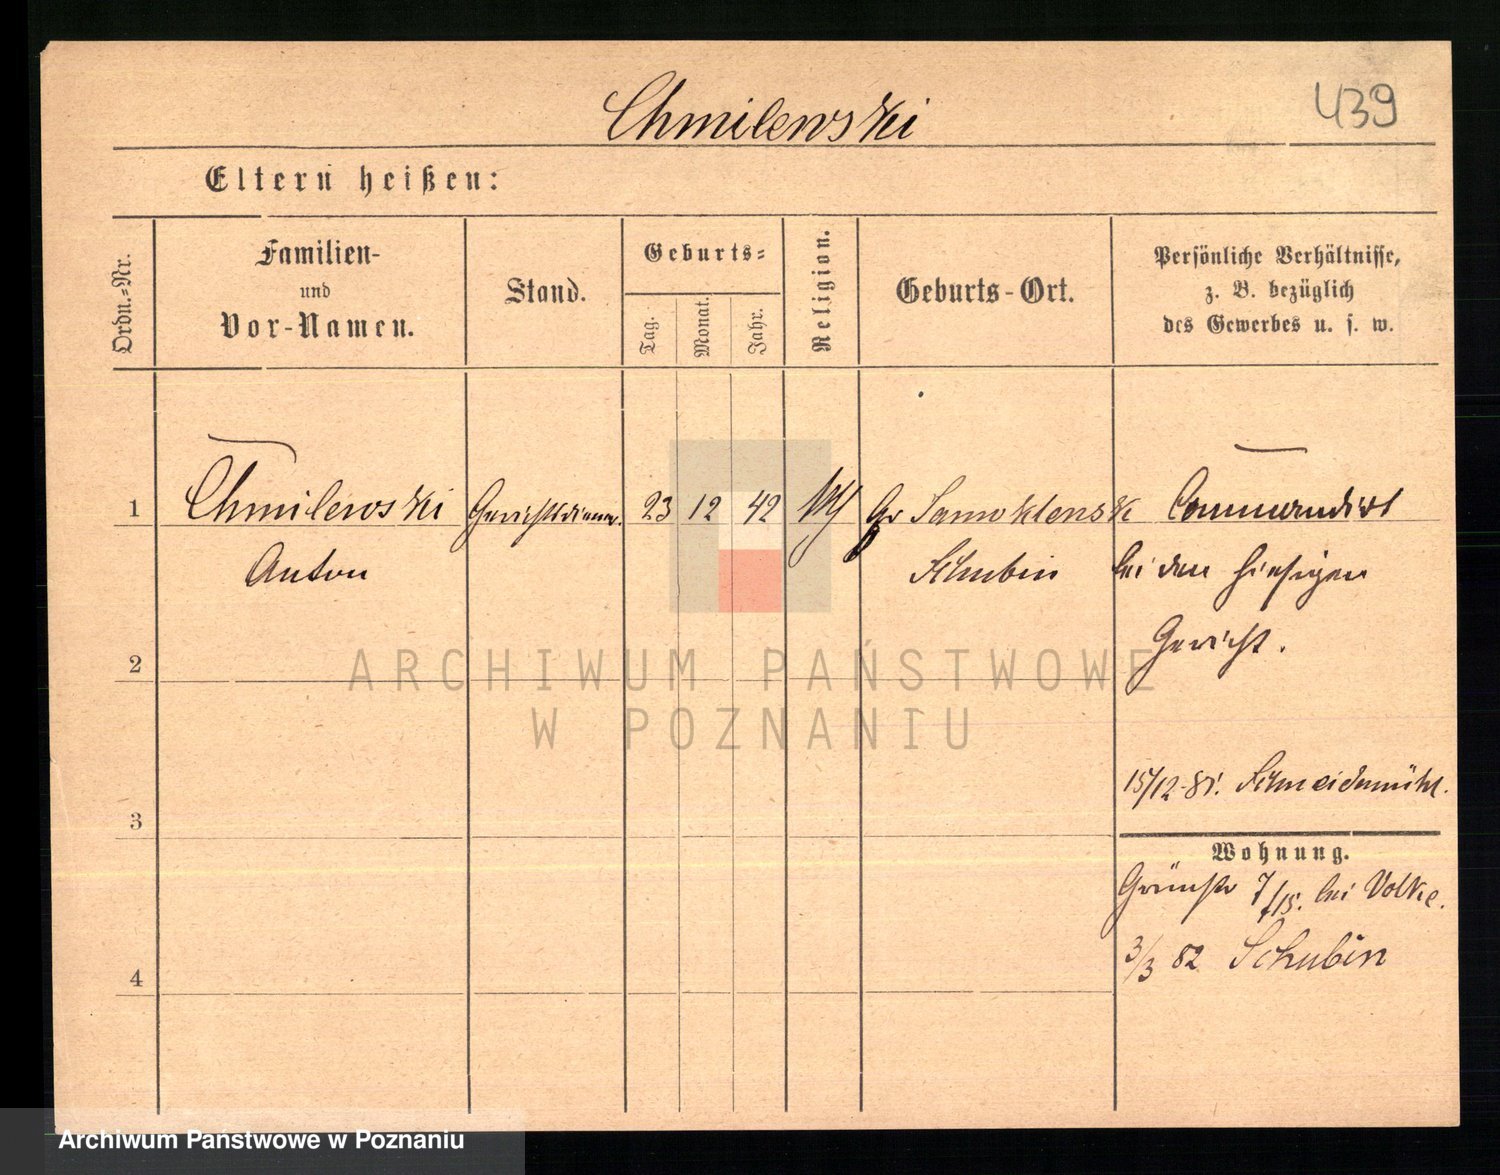 Chmilewski
439
Eltern heißen:
Ordn.-Nr.
Familien-
und
Vor-Namen.
Stand.
Geburts-
Tag.
Monat.
Jahr.
Religion.
Geburts-Ort.
Persönliche Verhältnisse,
z. B. bezüglich
des Gewerbes u. s. w.
1
Chmilewski
Anton
Gerichtsdiener.
23
12
42
Gr Samoklensk
Schubin
Commandirt
bei dem hiesigen
Gericht.
2
3
4
15/12-81. Schneidemühl.
Wohnung.
Grünstr 7/15. bei Volke.
3/3 82 Schubin
ARCHIWUM PAŃSTWOWE
W POZNANIU
Archiwum Państwowe w Poznaniu